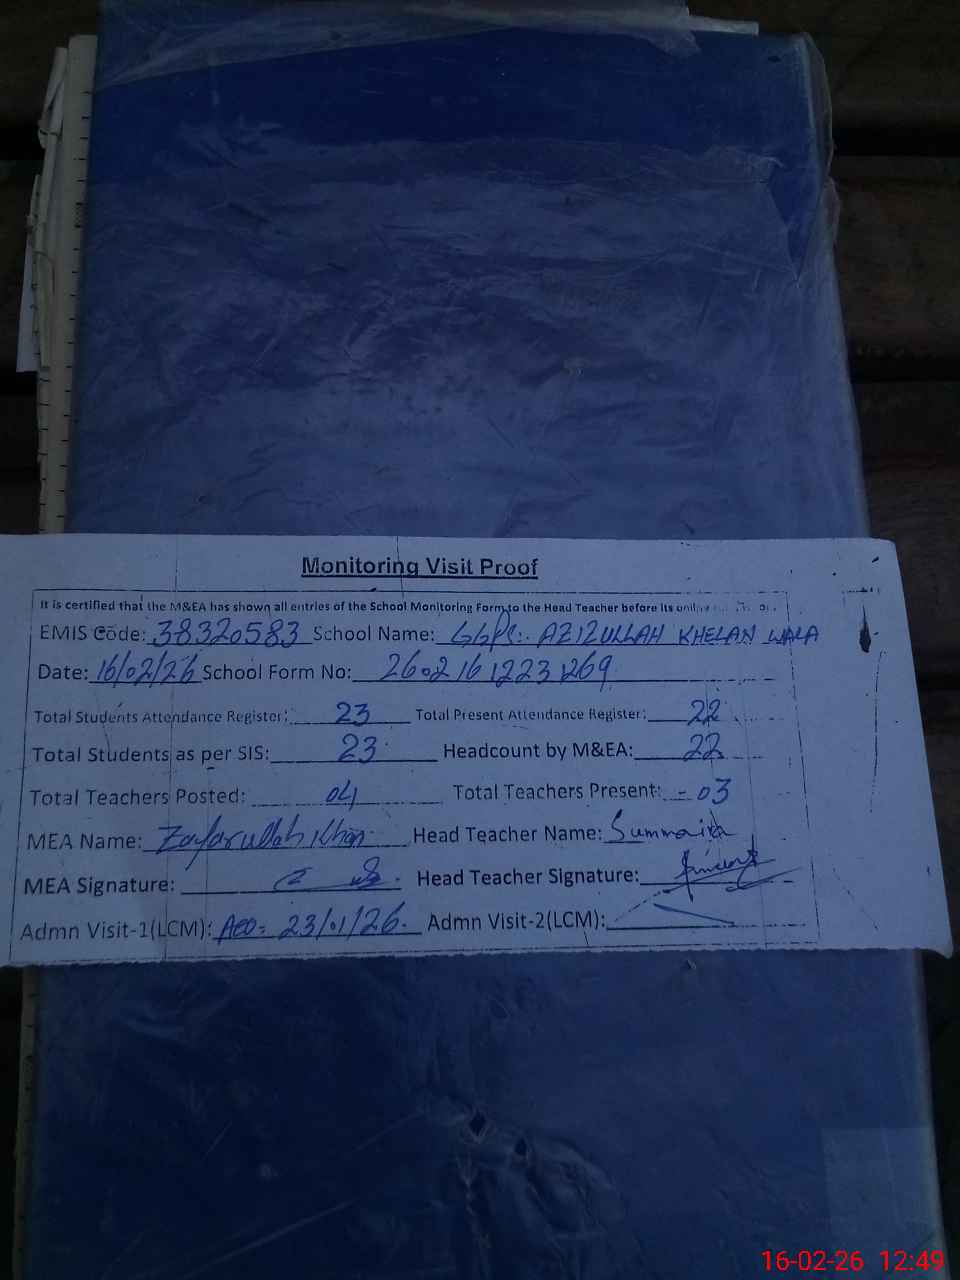 Monitoring Visit Proof
It is certified that the M&EA has shown all entries of the School Monitoring Form to the Head Teacher before its
EMIS Code: 38320583 School Name: GGPS. AZIZULLAH KHELAN WALA
Date: 16/02/26 School Form No: 26021612231269
Total Students Attendance Register: 23 Total Present Attendance Register: 22
Total Students as per SIS: 23 Headcount by M&EA: 22
Total Teachers Posted: 04 Total Teachers Present: 03
MEA Name: Zafarullah Khan Head Teacher Name: Summaira
MEA Signature: Head Teacher Signature:
Admn Visit-1(LCM): AEO= 23/01/26. Admn Visit-2(LCM):
16-02-26 12:49